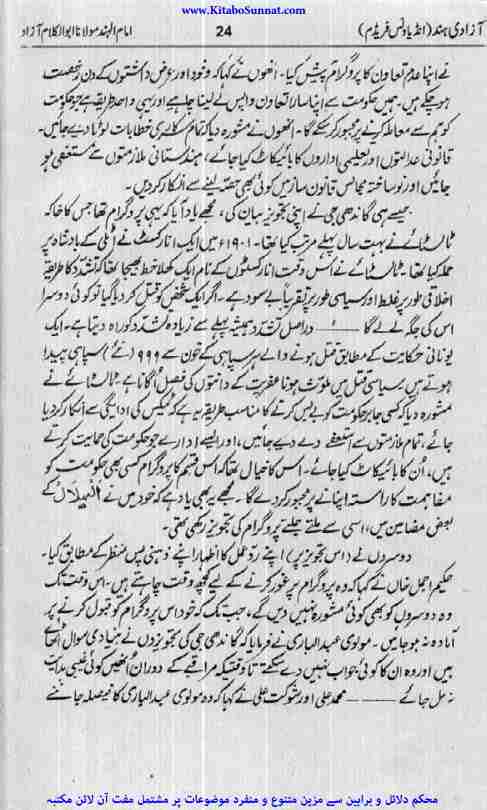 www.KitaboSunnat.com
آزادی ہند (انڈیا ونس فریڈم) 24 امام الہند مولانا ابوالکلام آزاد
نے اپنا عدم تعاون کا پروگرام پیش کیا۔ انھوں نے کہا کہ وفود اور عرض داشتوں کے دن رخصت
ہو چکے ہیں۔ ہمیں حکومت سے اپنا سارا تعاون واپس لے لینا چاہیے اور یہی واحد طریقہ ہے جو حکومت
کو ہم سے معاملہ کرنے پر مجبور کر سکے گا۔ انھوں نے مشورہ دیا کہ تمام سرکاری خطابات لوٹا دیے جائیں۔
قانونی عدالتوں اور تعلیمی اداروں کا بائیکاٹ کیا جائے، ہندستانی ملازمتوں سے مستعفی ہو
جائیں اور نو ساختہ مجالس قانون ساز میں کوئی بھی حصّہ لینے سے انکار کر دیں۔
جیسے ہی گاندھی جی نے اپنی تجویز بیان کی، مجھے یاد آیا کہ یہی پروگرام تھا جس کا خاکہ
ٹالسٹائے نے بہت سال پہلے مرتب کیا تھا۔ ۱۹۰۱ء میں ایک انارکسٹ نے اٹلی کے بادشاہ پر
حملہ کیا تھا۔ ٹالسٹائے نے اس وقت انارکسٹوں کے نام ایک کھلا خط بھیجا تھا کہ تشدد کا طریقہ
اخلاقی طور پر غلط اور سیاسی طور پر تقریباً بے سود ہے۔ اگر ایک شخص کو قتل کر دیا گیا تو کوئی دوسرا
اس کی جگہ لے لے گا ــــــ دراصل تشدد ہمیشہ پہلے سے زیادہ تشدد کو راہ دیتا ہے۔ ایک
یونانی حکایت کے مطابق قتل ہونے والے ہر سپاہی کے خون سے ۹۹۹ (نئے) سپاہی پیدا
ہوتے ہیں۔ سیاسی قتل میں ملوث ہونا عفریت کے دانتوں کی فصل اُگانا ہے۔ ٹالسٹائے نے
مشورہ دیا کہ کسی جابر حکومت کو بے بس کرنے کا مناسب طریقہ یہ ہے کہ ٹیکس کی ادائیگی سے انکار کر دیا
جائے، تمام ملازمتوں سے استعفے دے دیے جائیں، اور ایسے ادارے جو حکومت کی حمایت کرتے
ہیں، اُن کا بائیکاٹ کیا جائے۔ اس کا خیال تھا کہ اس قسم کا پروگرام کسی بھی حکومت کو
مفاہمت کا راستہ اپنانے پر مجبور کر دے گا۔ مجھے یہ بھی یاد ہے کہ خود میں نے الہلال کے
بعض مضامین میں، اسی سے ملتے جلتے پروگرام کی تجویز رکھی تھی۔
دوسروں نے (اس تجویز پر) اپنے ردِ عمل کا اظہار اپنے ذہنی پس منظر کے مطابق کیا۔
حکیم اجمل خاں نے کہا کہ وہ پروگرام پر غور کرنے کے لیے کچھ وقت چاہتے ہیں۔ اس وقت تک
وہ دوسروں کو بھی کوئی مشورہ نہیں دیں گے، جب تک کہ خود اس پروگرام کو قبول کرنے پر
آمادہ نہ ہو جائیں۔ مولوی عبدالباری نے فرمایا کہ گاندھی جی کی تجویزوں نے بنیادی سوال اٹھائے
ہیں اور وہ ان کا کوئی جواب نہیں دے سکتے تا وقتیکہ مراقبے کے دوران اُنھیں کوئی غیبی ہدایت
نہ مل جائے ــــــ محمد علی اور شوکت علی نے کہا کہ وہ مولوی عبدالباری کا فیصلہ جاننے
محکم دلائل و براہین سے مزین متنوع و منفرد موضوعات پر مشتمل مفت آن لائن مکتبہ